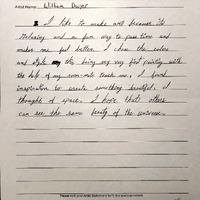 Artist Name: William Dwyer
I like to make art because its
relaxing and a fun way to pass time and
makes me feel better. I chose the colors
and style this being my very first painting with
the help of my room-mate teach me. I found
inspiration to create something beautiful. I
thought of space. I hope that others
can see the same beauty of the universe.